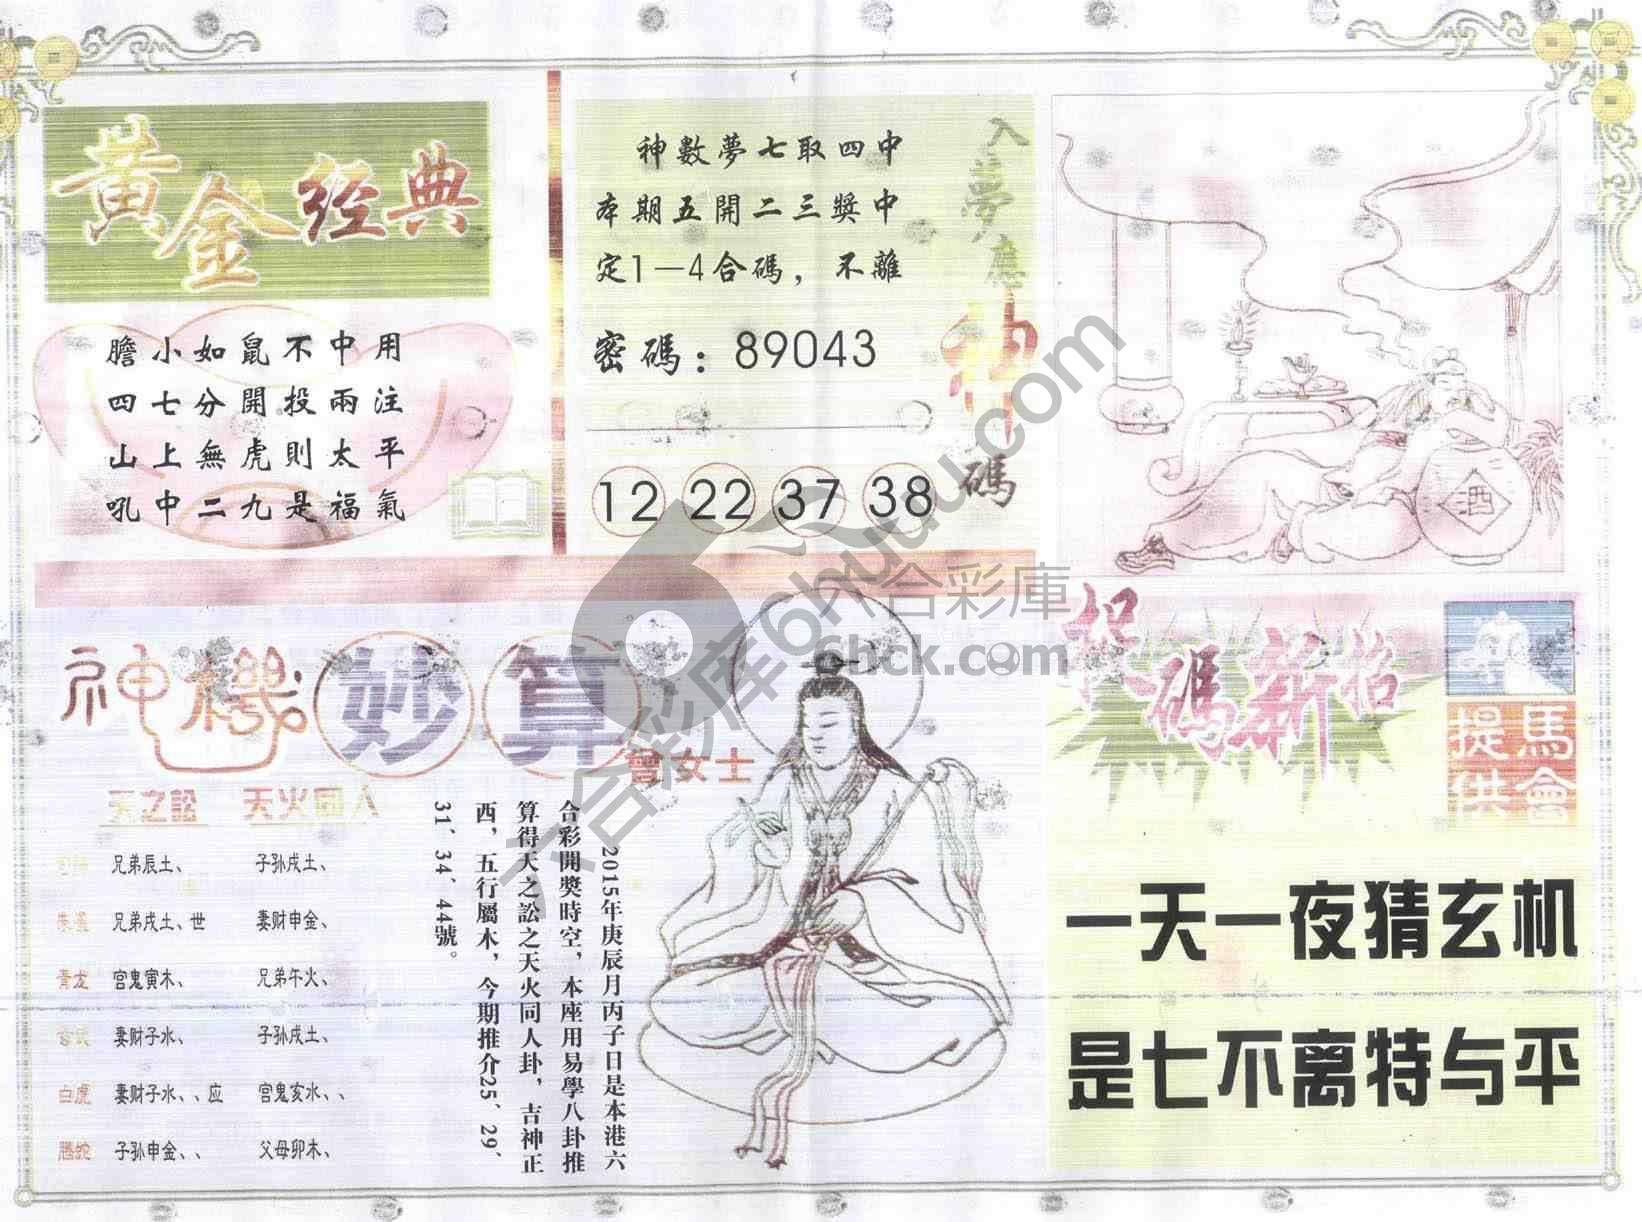 黄金经典
膽小如鼠不中用
四七分開投兩注
山上無虎則太平
吼中二九是福氣
神數夢七取四中
本期五開二三獎中
定1—4合碼，不離
密碼：89043
12 22 37 38
入夢應神碼
酒
神機妙算
曾女士
天之訟 天火同人
兄弟辰土、 子孙戌土、
朱雀 兄弟戌土、世 妻财申金、
青龙 宫鬼寅木、 兄弟午火、
玄武 妻财子水、 子孙戌土、
白虎 妻财子水、、应 宫鬼亥水、、
腾蛇 子孙申金、、 父母卯木、
2015年庚辰月丙子日是本港六
合彩開獎時空，本座用易學八卦推
算得天之訟之天火同人卦，吉神正
西，五行屬木，今期推介25、29、
31、34、44號。
捉碼新招
馬會提供
一天一夜猜玄机
是七不离特与平
六合彩库6huuu.com
六合彩庫
6hck.com